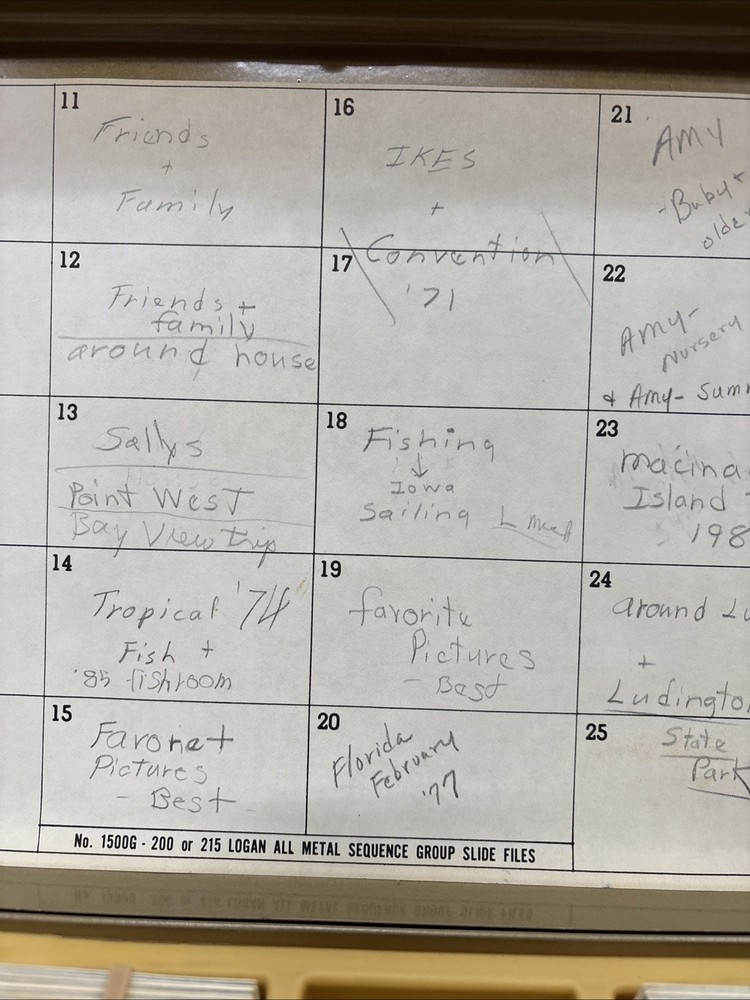 11
Friends
+
Family
12
Friends +
family
around house
13
Sallys
Point West
Bay View trip
14
Tropical '74
Fish +
'85 fishroom
15
Favoret
Pictures
- Best
16
IKES
+
Convention
17
'71
18
Fishing
↓
Iowa
Sailing L
19
favorite
Pictures
- Best
20
Florida
February
'77
21
AMY
- Baby +
older
22
AMY-
Nursery
& Amy- Summ
23
macina
Island
198
24
around Lu
+
Ludington
25
State
Park
No. 1500G - 200 or 215 LOGAN ALL METAL SEQUENCE GROUP SLIDE FILES